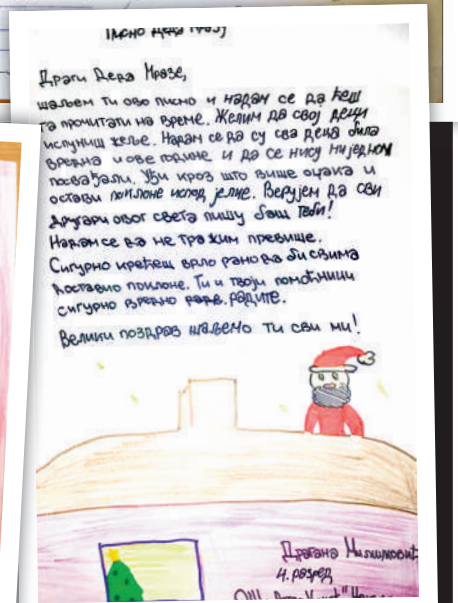 Писмо Деда Мразу
Драги Деда Мразе,
шаљем ти ово писмо и надам се да ћеш
га прочитати на време. Желим да свој деци
испуниш жеље. Надам се да су сва деца била
вредна и ове године и да се нису ни једном
посвађали. Уђи кроз што више оџака и
остави поклоне испод јелке. Верујем да сви
другари овог света пишу баш теби!
Надам се да не тражим превише.
Сигурно крећеш врло рано да би свима
доставио поклоне. Ти и твоји помоћници
сигурно вредно радите.
Велики поздрав шаљемо ти сви ми!
Драгана
4. разред
ОШ